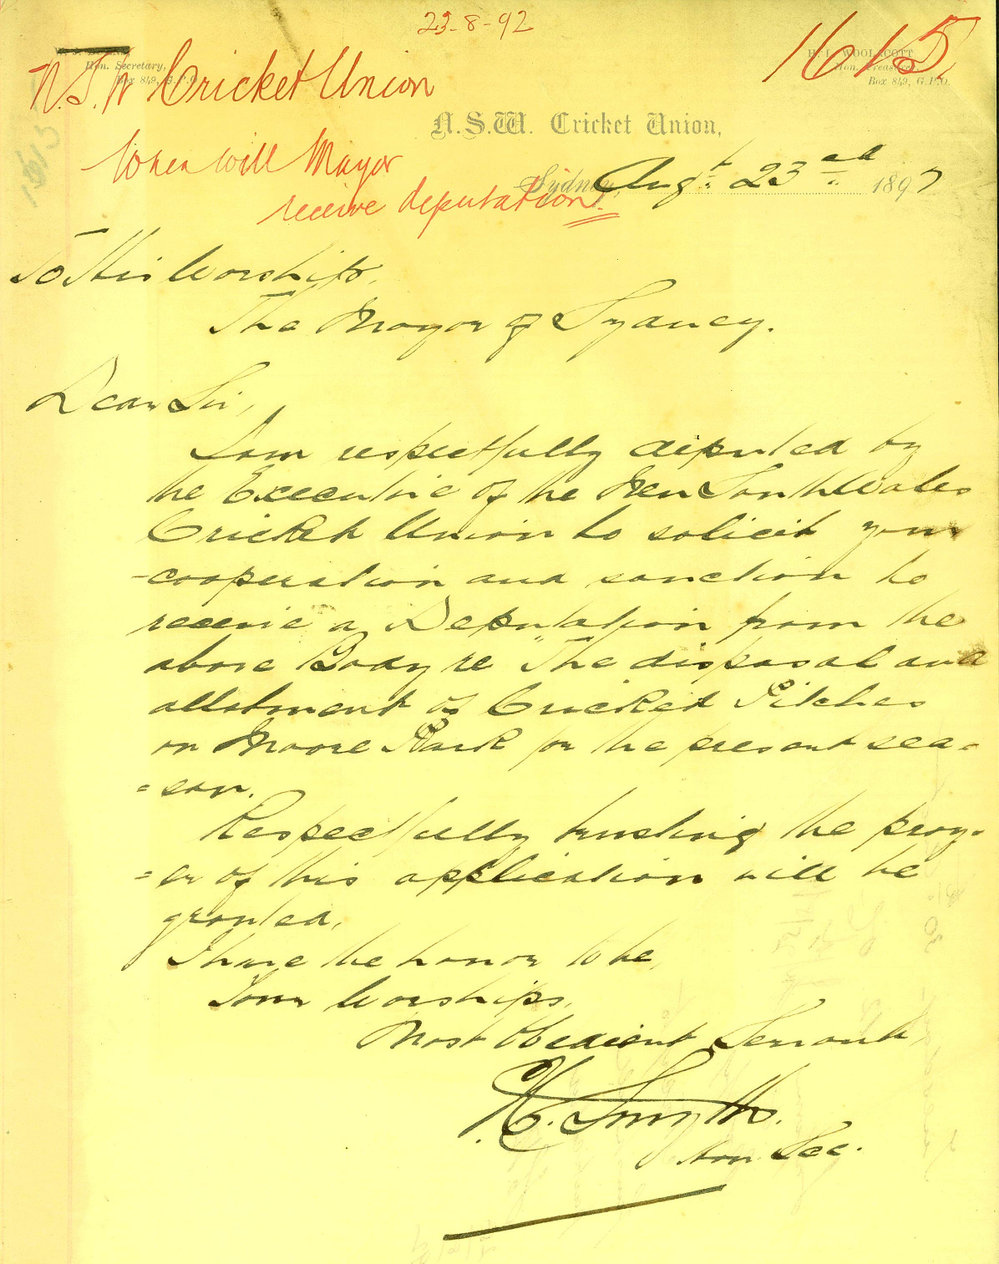 23-8-92
1615
N.S.W Cricket Union
When will Mayor
receive deputation
Hon. Secretary,
Box 849, G.P.O.
H. I. WOOLSCOTT
Hon. Treasurer
Box 849, G.P.O.
N.S.W. Cricket Union,
Sydney, Augt. 23rd 1897
To His Worship
The Mayor of Sydney.
Dear Sir,
I am respectfully deputed by
the Executive of the New South Wales
Cricket Union to solicit your
cooperation and sanction to
receive a Deputation from the
above Body re "The disposal and
allotment of Cricket Pitches
on Moore Park for the present sea=
=son.
Respectfully trusting the pray=
=er of this application will be
granted,
I have the honor to be,
Your Worships,
Most Obedient Servant,
Smyth.
Hon. Sec.